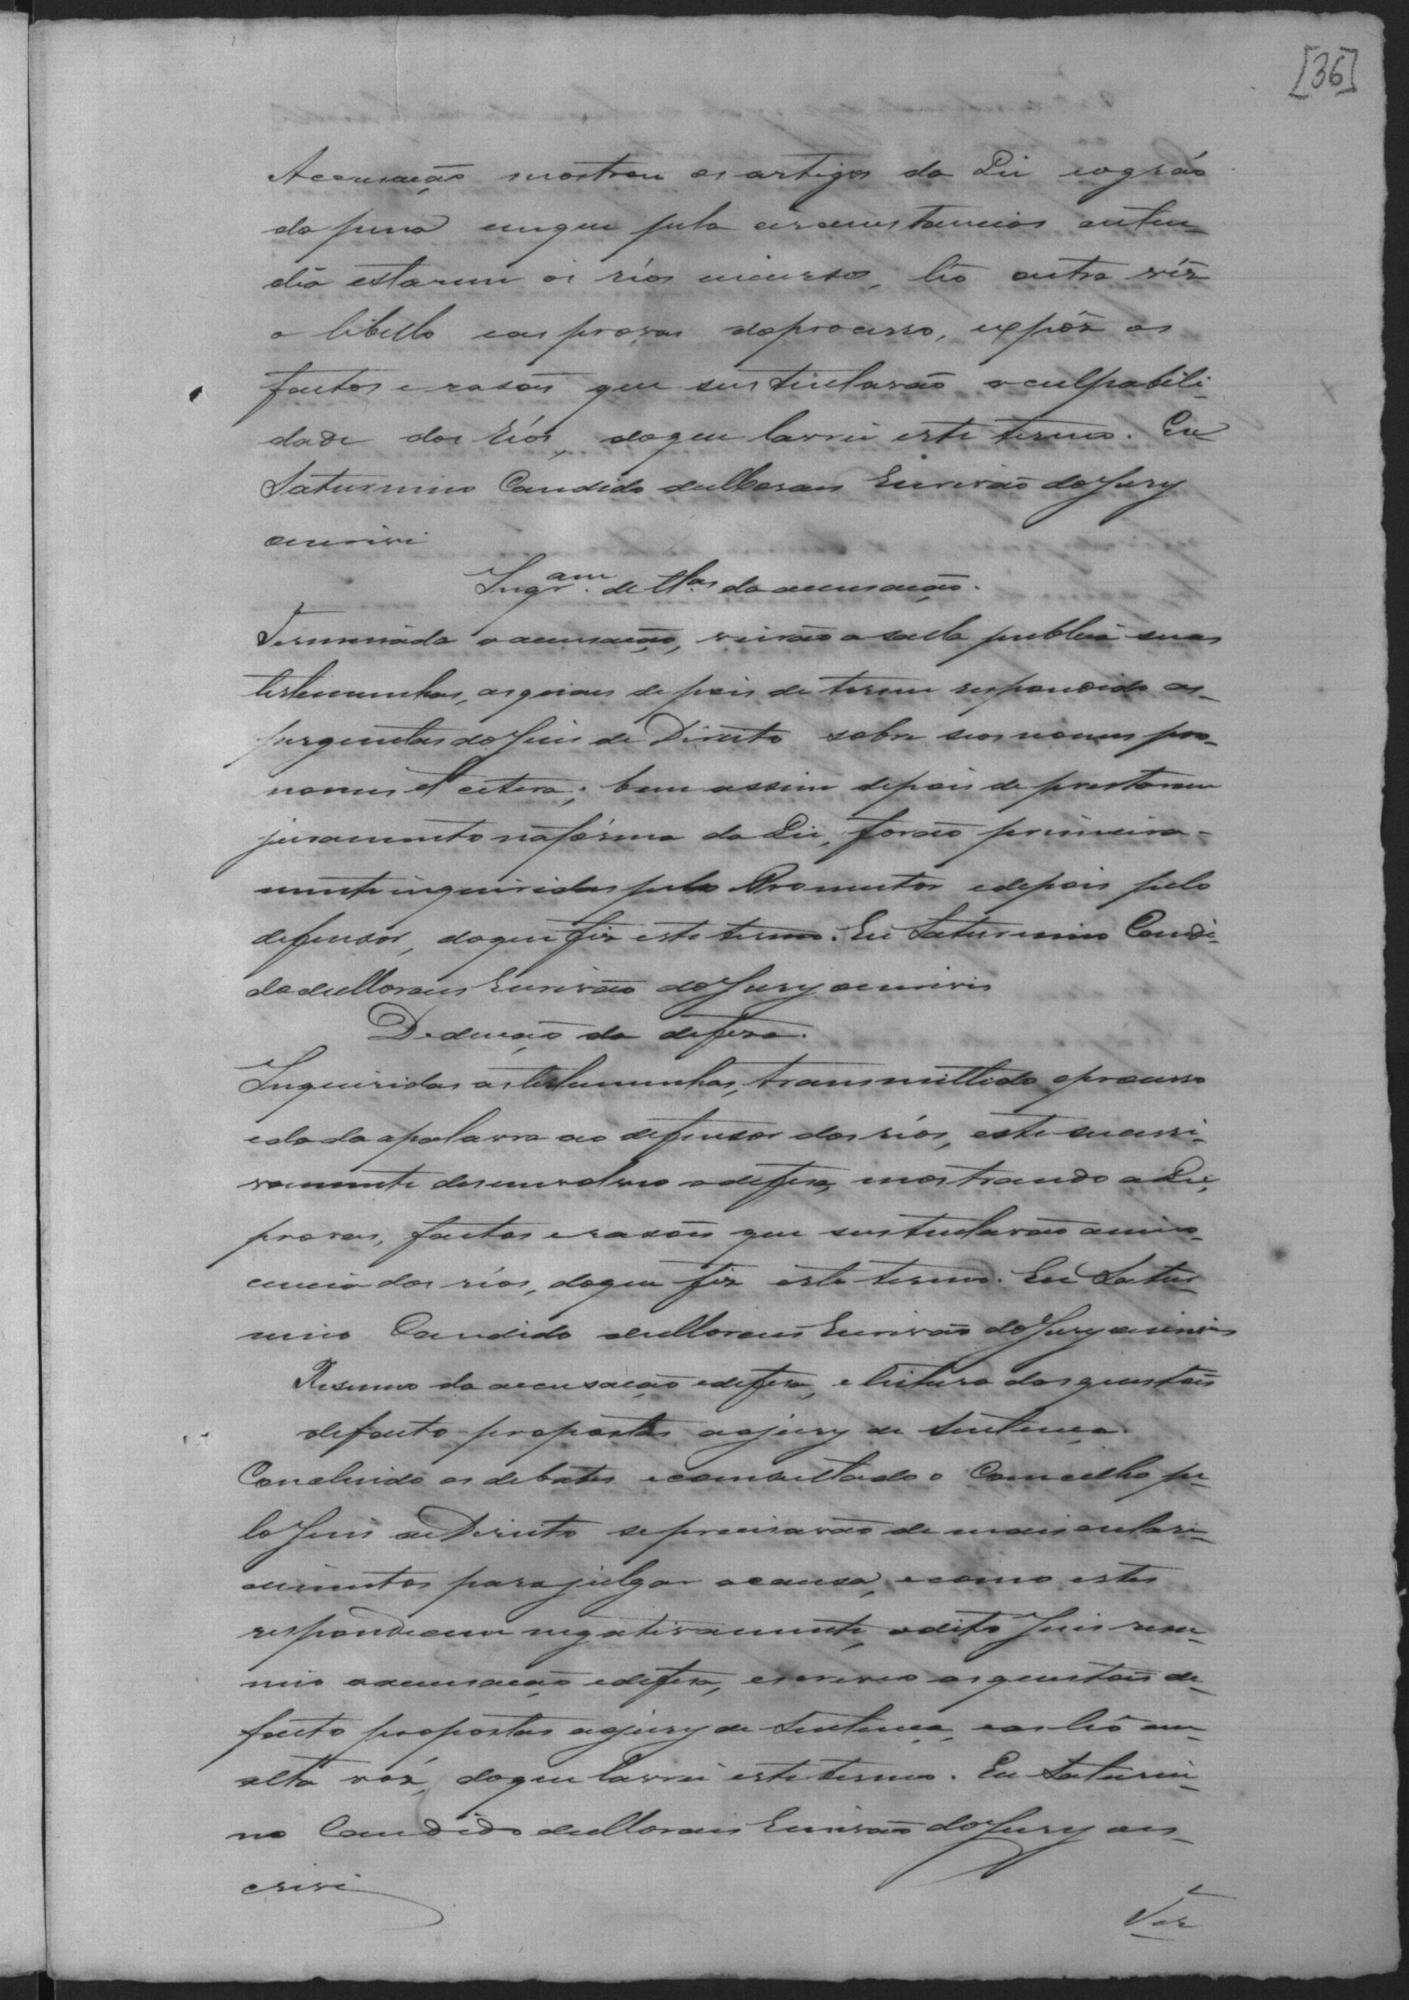 [36]
Accusação mostrou os artigos da Lei eográo
da pena emque pela circunstancias enten-
dia estarem os réos incurso, lêo outra vêz
o libello eas provas doprocesso, expôz os
factos erasões que sustentavão a culpabili-
dade dos Réos, doque lavrei este termo. Eu
Saturnino Candido deMoraes Escrivão doJury
oescrivi
Inqr.am de tt.as da accusação.
Terminada a accusação, vierão a salla publica suas
testemunhas, asquaes depois de terem respondido as
perguntas doJuis de Direito sobre seos nomes pro-
nomes et cetera; bem assim depois de prestarem
juramento nafórma da Lei, forão primeira-
mente inqueridas pelo Promutor edepois pelo
defensor, doque fiz este termo. Eu Saturnino Candi-
do deMoraes Escrivão doJury oescrivi
Dedução da defesa.
Inqueridas as testemunhas, transmittido oprocesso
edada apalavra ao defensor dos réos, este sucessi-
vamente desenvolveo adefesa, mostrando a Lei,
provas, factos erasões que sustentavão ainno-
cencia dos réos, doque fiz este termo. Eu Satur-
nino Candido deMoraes Escrivão doJury oescrivi
Resumo da accusação edefesa, eleitura dasquestões
defacto propostas aojury de sentença.
Concluido os debates econsultado o Conselho pe-
lo Juis deDireito seprecisavão de mais esclare-
cimentos parajulgar acausa, ecomo estes
respondecem negativamente, odito Juis resu-
mio aaccusação edefesa, escreveo asquestões de
facto propostas aojury de Sentença, eas lêo em
alta voz, doque lavrei este termo. Eu Saturni-
no Candido deMoraes Escrivão doJury oes-
crivi